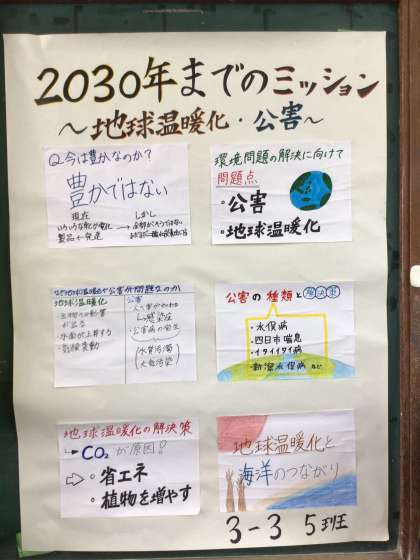 2030年までのミッション
〜地球温暖化・公害〜
Q.今は豊かなのか?
豊かではない
現在
しかし
製品へ発達
環境問題の解決に向けて
問題点
・公害
・地球温暖化
なぜ地球温暖化や公害が問題なのか
地球温暖化
・生物への影響
が出る
・水面が上昇する
・気候変動
公害
感染症
・公害病の発生
(水質汚濁
大気汚染)
公害の種類と解決策
・水俣病
・四日市喘息
・イタイイタイ病
・新潟水俣病 など
地球温暖化の解決策
→CO₂が原因!
⇨・省エネ
・植物を増やす
地球温暖化と
海洋のつながり
3-3 5班